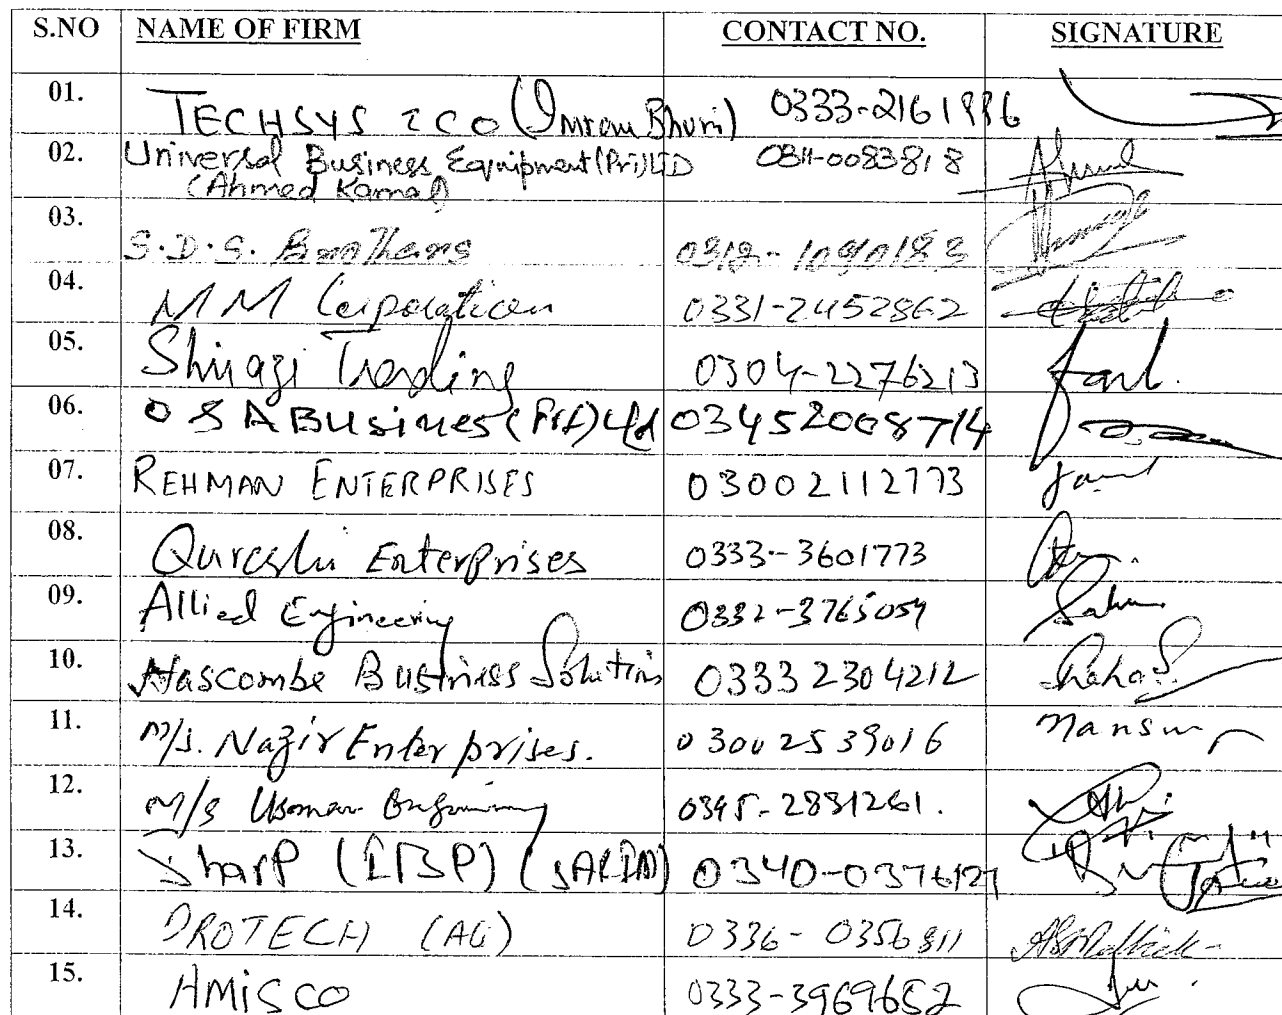 S.NO NAME OF FIRM CONTACT NO. SIGNATURE
01. TECHSYS & CO (Imran Bhuri) 0333-2161996
02. Universal Business Equipment (Pri) LTD 0311-0083818
(Ahmed Kamal)
03. S.D.S. Brothers 0312-1090183
04. MM Corporation 0331-2452862
05. Shirazi Trading 0304-2276213
06. O S A Busines (Pvt) Ltd 03452008714
07. REHMAN ENTERPRISES 03002112773
08. Qureshi Enterprises 0333-3601773
09. Allied Engineering 0332-3765059
10. Hascombe Business Solutions 03332304212
11. M/s. Nazir Enterprises. 03002539016 Mansur
12. M/s Usman Engineering 0345-2881261.
13. Sharp (IBP) (SALIM) 0340-0376127
14. PROTECH (AG) 0336-0356811
15. AMISCO 0333-3969652